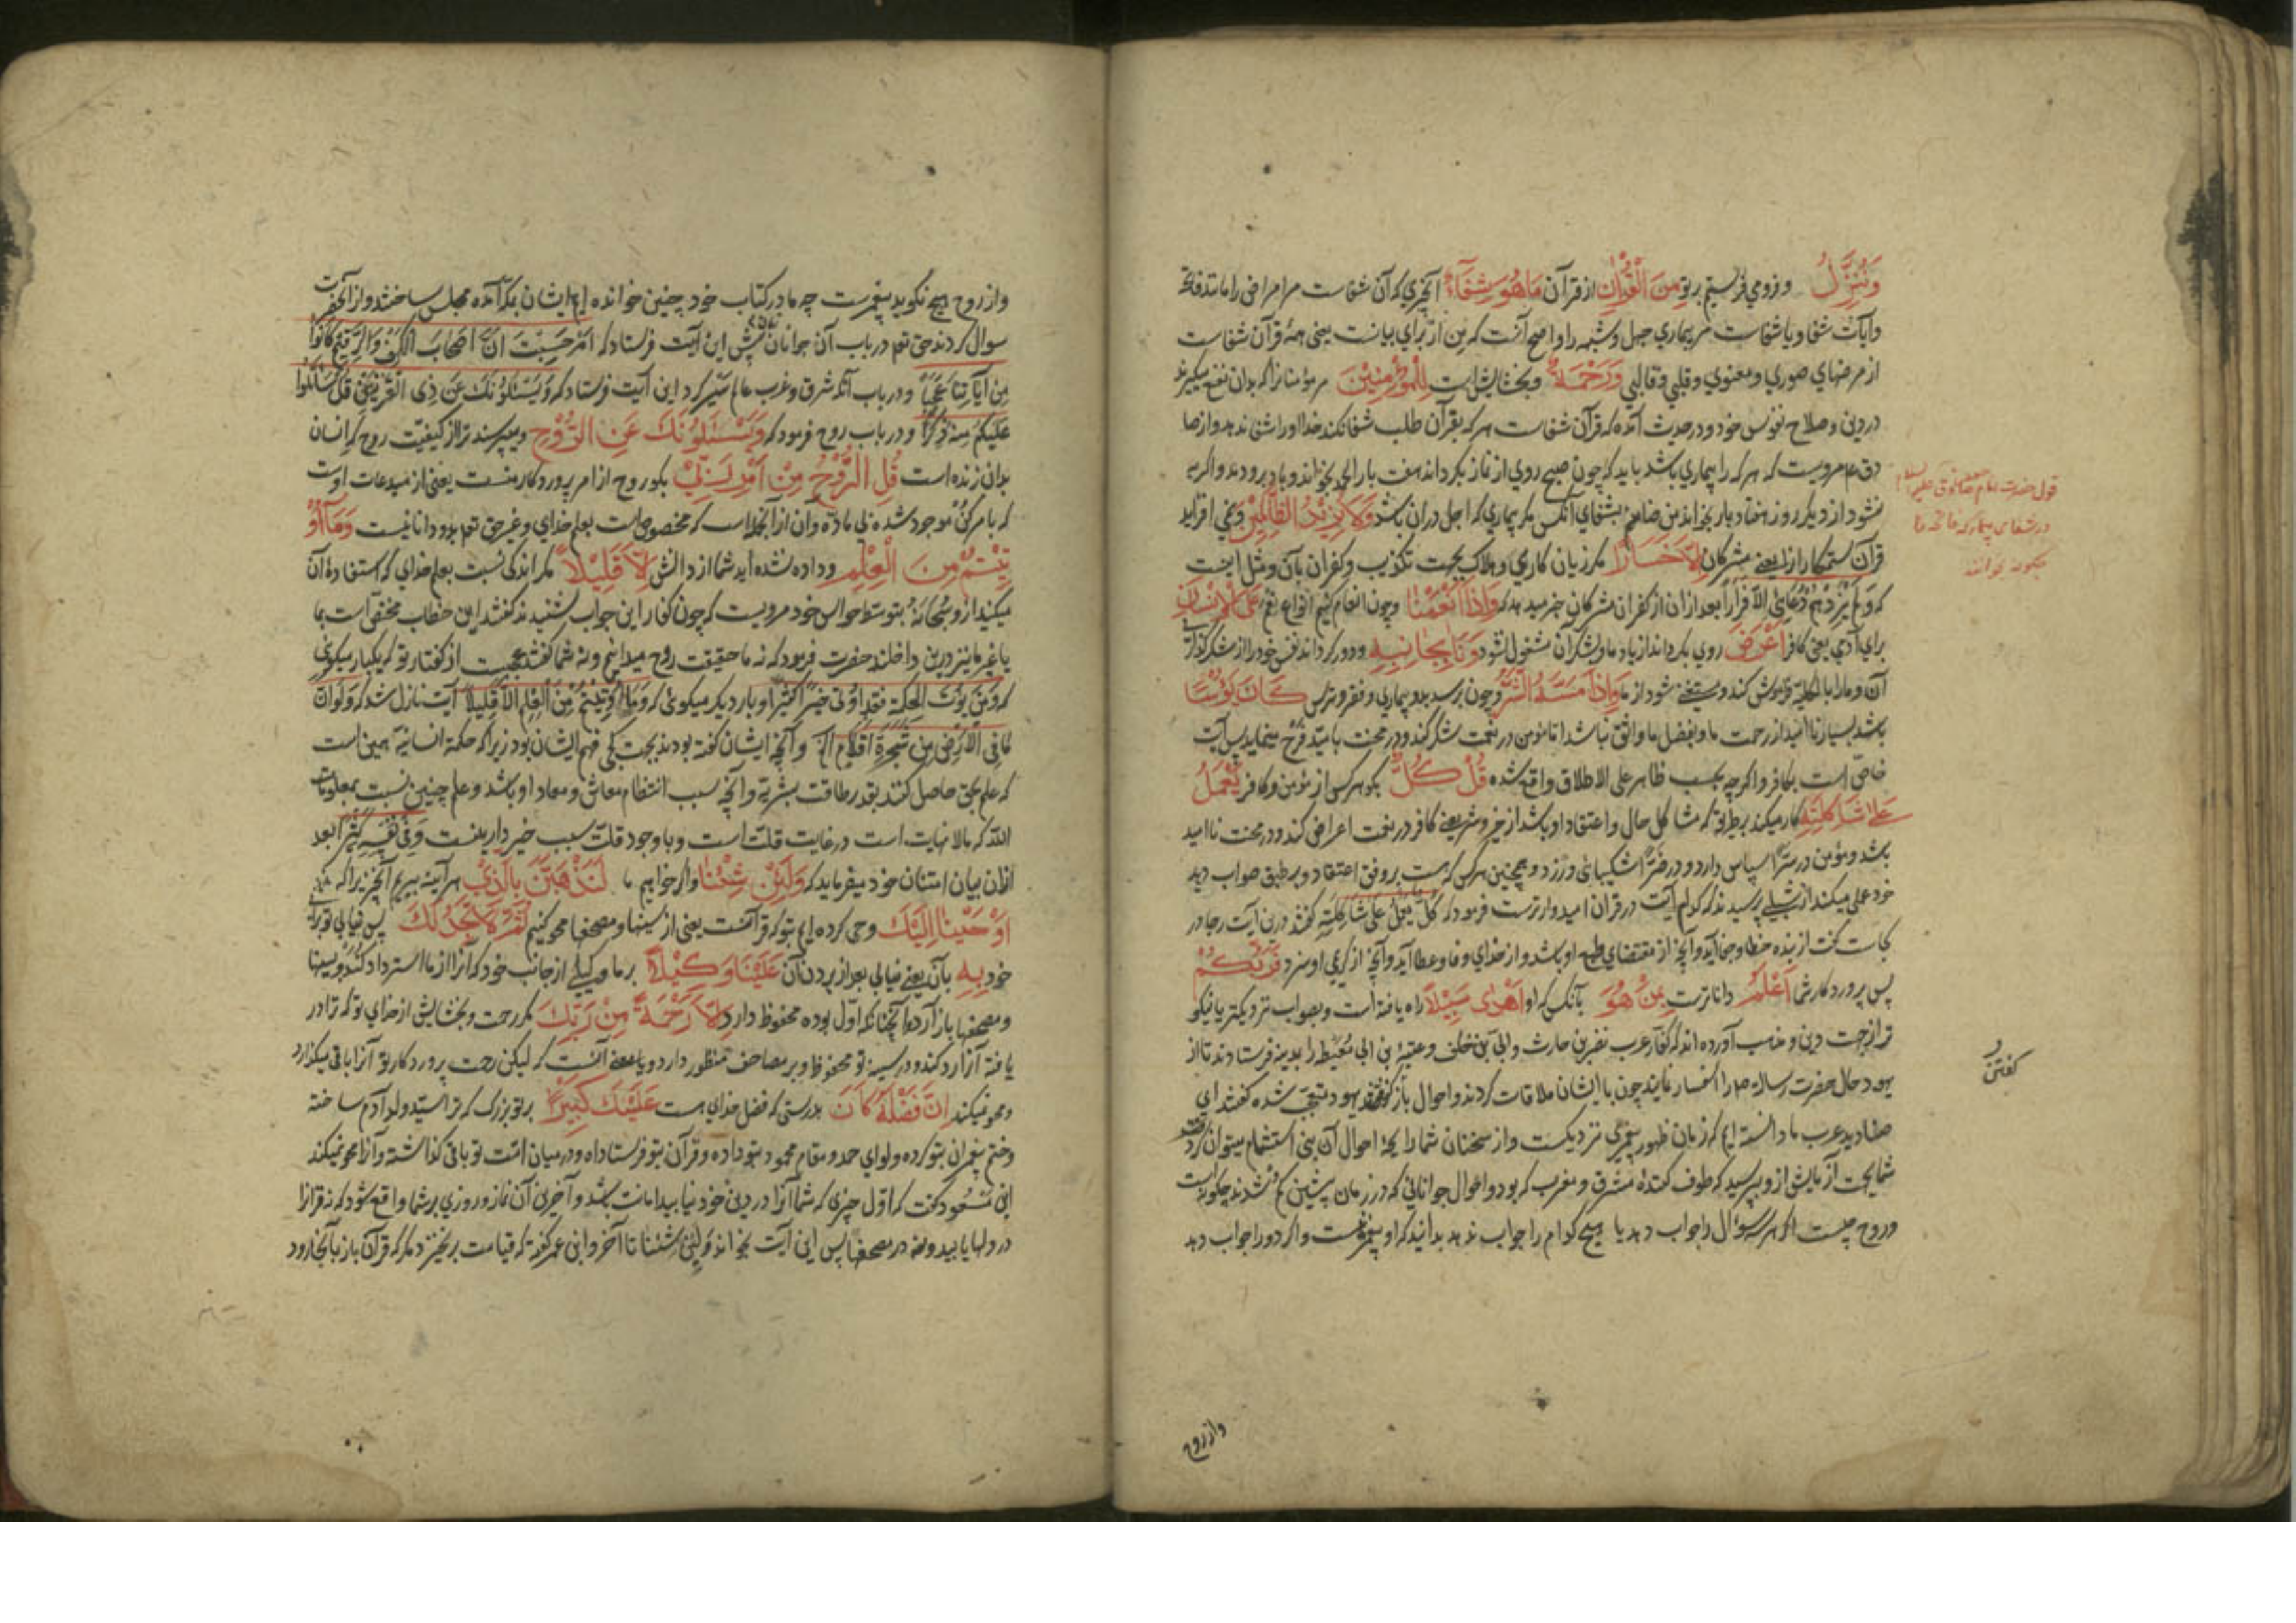 وَنُنَزِّلُ و فرو می فرستیم بر تو مِنَ الْقُرْآنِ از قرآن مَا هُوَ شِفَآءٌ آنچیزی که آن شفاست مر امراض را مانند فاتحه
و آیات شفا و یا شفاست مر بیماری جهل و شبهه را و اصح آنست که مِن از برای بیانست یعنی همه قرآن شفاست
از مرضهای صوری و معنوی و قلبی و قالبی وَرَحْمَةٌ و بخشایش است لِلْمُؤْمِنِیْنَ مر مؤمنانرا که بدان نفع میگیرند
در دین و صلاح نفوس خود و در حدیث آمده که قرآن شفاست هر که بقرآن طلب شفا نکند خدا او را شفا ندهد و از صا
دق ع م مرویست که هر که را بیماری باشد باید که چون صبح روی از نماز بگرداند هفت بار الحمد بخواند و باد برو دمد و اگر به
نشود از دیگر روز هفتاد بار بخواند من ضامنم بشفای آنکس مگر بیماری که اجل دران باشد وَلَا یَزِیْدُ الظَّالِمِیْنَ و نمی افزاید
قرآن ستمکارانرا یعنی مشرکان اِلَّا خَسَارًا مگر زیان کاری و هلاک بجهت تکذیب و کفران بآن و مثل اینست
که وَلَمْ یَزِدْهُمْ دُعَائِی اِلَّا فِرَارًا بعد ازان از کفران مشرکان خبر میدهد که وَاِذَا اَنْعَمْنَا و چون انعام کنیم انواع نعم عَلَی الْاِنْسَانِ
برای آدمی یعنی کافر اَعْرَضَ روی بگرداند از یاد ما و بشکر آن مشغول نشود وَنَا بِجَانِبِهِ و دور گرداند نفس خود را از شکرگذاری
آن و مارا بالکلیه فراموش کند و مستغنی شود از ما وَاِذَا مَسَّهُ الشَّرُّ و چون برسد بدو بیماری و فقر و ترس کَانَ یَؤُسًا
باشد بسیار ناامید از رحمت ما و بفضل ما واثق نباشد اما مؤمن در نعمت شکر کند و در محنت بامید فرح مینماید پس آیت
خاص است بکافر و اگرچه بحسب ظاهر علی الاطلاق واقع شده قُلْ کُلٌّ بگو هر کس از مؤمن و کافر یَعْمَلُ
عَلٰی شَاکِلَتِهِ کار میکند بر طریقه که مشاکل حال و اعتقاد او باشد از خیر و شر یعنی کافر در نعمت اعراض کند و در محنت ناامید
باشد و مؤمن در سرّا سپاس دارد و در ضرّا شکیبائی ورزد و همچنین هر کس که هست بر وفق اعتقاد و بر طبق صواب دید
خود عمل میکند از شبلی پرسیدند که کدام آیت در قرآن امیدوارترست فرمود که کُلٌّ یَعْمَلُ عَلٰی شَاکِلَتِهِ گفتند درین آیت رجا در
کجاست گفت از بنده خطا و جفا آید و آنچه از مقتضای طبع او باشد و از خدای وفا و عطا آید و آنچه از کرم او سزد فَرَبُّکُمْ
پس پروردگار شما اَعْلَمُ داناترست بِمَنْ هُوَ بآنکس که او اَهْدٰی سَبِیْلًا راه یافته است و بصواب نزدیکتر یا نیکو
تر از جهت دین و مذهب آورده اند که کفار عرب نضر بن حارث و ابی بن خلف و عتبه بن ابی معیط را بمدینه فرستادند تا از
یهود حال حضرت رسالة صم را استفسار نمایند چون با ایشان ملاقات کردند و احوال باز گفتند یهود متعجب شده گفتند ای
صنادید عرب ما دانسته ایم که زمان ظهور پیغمبری نزدیکست و از سخنان شما رایحه احوال آن نبی استشمام میتوان کرد
شما بجهت آزمایش ازو بپرسید که طوف کننده مشرق و مغرب که بود و احوال جوانانی که در زمان پیشین گم شدند چگونه است
و روح چیست اگر هر سه سؤال را جواب دهد یا هیچ کدام را جواب ندهد بدانید که او پیغمبر نیست و اگر دو را جواب دهد
قول حضرت امام جعفر صادق علیه السلام
در شفای بیمار که فاتحه را
چگونه بخوانند
گفتن
و از روح
و از روح هیچ نگوید پیغمبرست چه ما در کتاب خود چنین خوانده ایم ایشان بمکه آمده مجلس ساختند و از آنحضرت
سوال کردند حق تعم در باب آن جوانان پیش این آیت فرستاد که اَمْ حَسِبْتَ اَنَّ اَصْحَابَ الْکَهْفِ وَالرَّقِیْمِ کَانُوا
مِنْ اٰیَاتِنَا عَجَبًا و در باب آنکه شرق و غرب عالم سیر کرد این آیت فرستاد که وَیَسْئَلُوْنَكَ عَنْ ذِی الْقَرْنَیْنِ قُلْ سَاَتْلُوا
عَلَیْکُمْ مِنْهُ ذِکْرًا و در باب روح فرمود که وَیَسْئَلُوْنَكَ عَنِ الرُّوْحِ و میپرسند ترا از کیفیت روح که انسان
بدان زنده است قُلِ الرُّوْحُ مِنْ اَمْرِ رَبِّیْ بگو روح از امر پروردگار منست یعنی از مبدعات اوست
که بامر کن موجود شده بی ماده و ان از آنجمله است که مخصوص است بعلم خدای و غیر حق تعم بدو دانا نیست وَمَآ اُوْ
تِیْتُمْ مِنَ الْعِلْمِ و داده نشده اید شما از دانش اِلَّا قَلِیْلًا مگر اندکی نسبت بعلم خدای که استفاده آن
میکنید ازو سُبْحَانَهُ بتوسط حواس خود مرویست که چون کفار این جواب شنیدند گفتند این خطاب مختص آست بما
یا غیر ما نیز درین داخلند حضرت فرمود که نه ما حقیقت روح میدانیم و نه شما گفتند عجبست از گفتار تو که یکبار میگوئی
که وَمَنْ یُؤْتَ الْحِکْمَةَ فَقَدْ اُوتِیَ خَیْرًا کَثِیْرًا و بار دیگر میگوئی که وَمَا اُوتِیْتُمْ مِنَ الْعِلْمِ اِلَّا قَلِیْلًا آیت نازل شد که وَلَوْ اَنَّ
مَا فِی الْاَرْضِ مِنْ شَجَرَةٍ اَقْلَامٌ الخ و آنچه ایشان گفته بودند بجهت کجی فهم ایشان بود زیرا که حکمة انسانیه همین است
که علم بحق حاصل کنند بقدر طاقت بشریه و آنچه سبب انتظام معاش و معاد او باشد و علم چنین نسبت بمعلومات
الله که مالانهایت است در غایت قلت است و با وجود قلت سبب خیر دارینست وَفِی نَفْسِهِ کَثِیْرٌ بعد
ازان بیان امتنان خود میفرماید که وَلَئِنْ شِئْنَا و اگر خواهیم ما لَنَذْهَبَنَّ بِالَّذِیْ هر آینه ببریم آنچیز را که
اَوْحَیْنَا اِلَیْكَ وحی کرده ایم بتو که قرآنست یعنی از سینها و مصحفها محو کنیم ثُمَّ لَا تَجِدُ لَكَ پس نیابی تو برای
خود بِهِ بآن یعنی نیابی بعد از بردن آن عَلَیْنَا وَکِیْلًا بر ما وکیلی از جانب خود که آنرا از ما استرداد کند و بسینها
و مصحفها باز آرد و آنچنانکه اول بوده محفوظ دارد اِلَّا رَحْمَةً مِنْ رَبِّكَ مگر رحمت و بخشایش از خدای تو که ترا در
یافته آنرا رد کند و در سینه تو محفوظ و بر مصاحف منظور دارد و یا معنی آنست که لیکن رحمت پروردگار تو آنرا باقی میگذارد
و محو نمیکند اِنَّ فَضْلَهُ کَانَ بدرستی که فضل خدای هست عَلَیْكَ کَبِیْرًا بر تو بزرگ که ترا سید ولد آدم ساخته
و ختم پیغمبران بتو کرده و لوای حمد و مقام محمود بتو داده و قرآن بتو فرستاده و در میان امت تو باقی گذاشته و آنرا محو نمیکند
ابن مسعود گفت که اول چیزی که شما آنرا در دین خود نیابید امانت باشد و آخرین آن نماز و روزی بر شما واقع شود که نه قرآنرا
در دلها یابید و نه در مصحفها پس این آیت بخواند وَلَئِنْ شِئْنَا تا آخر و ابن عمر گفته که قیامت برنخیزد مگر که قرآن باز بآنجا رود